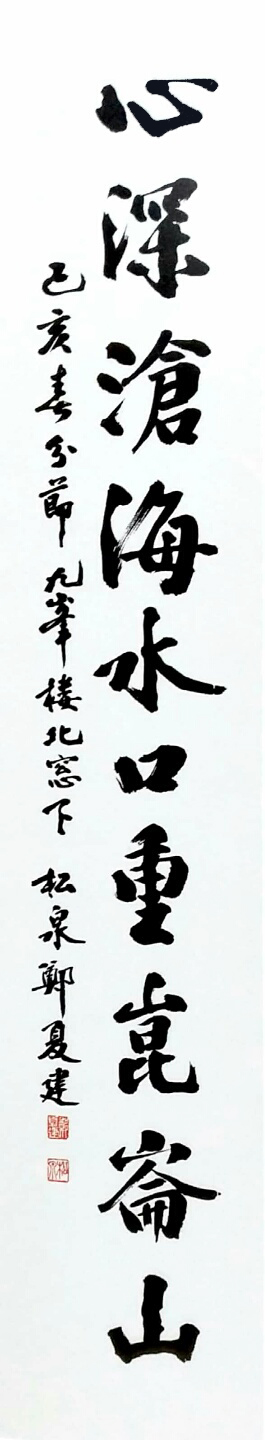 心深滄海水口重崑崙山
己亥春分節九峯楼北窓下 松泉鄭夏建